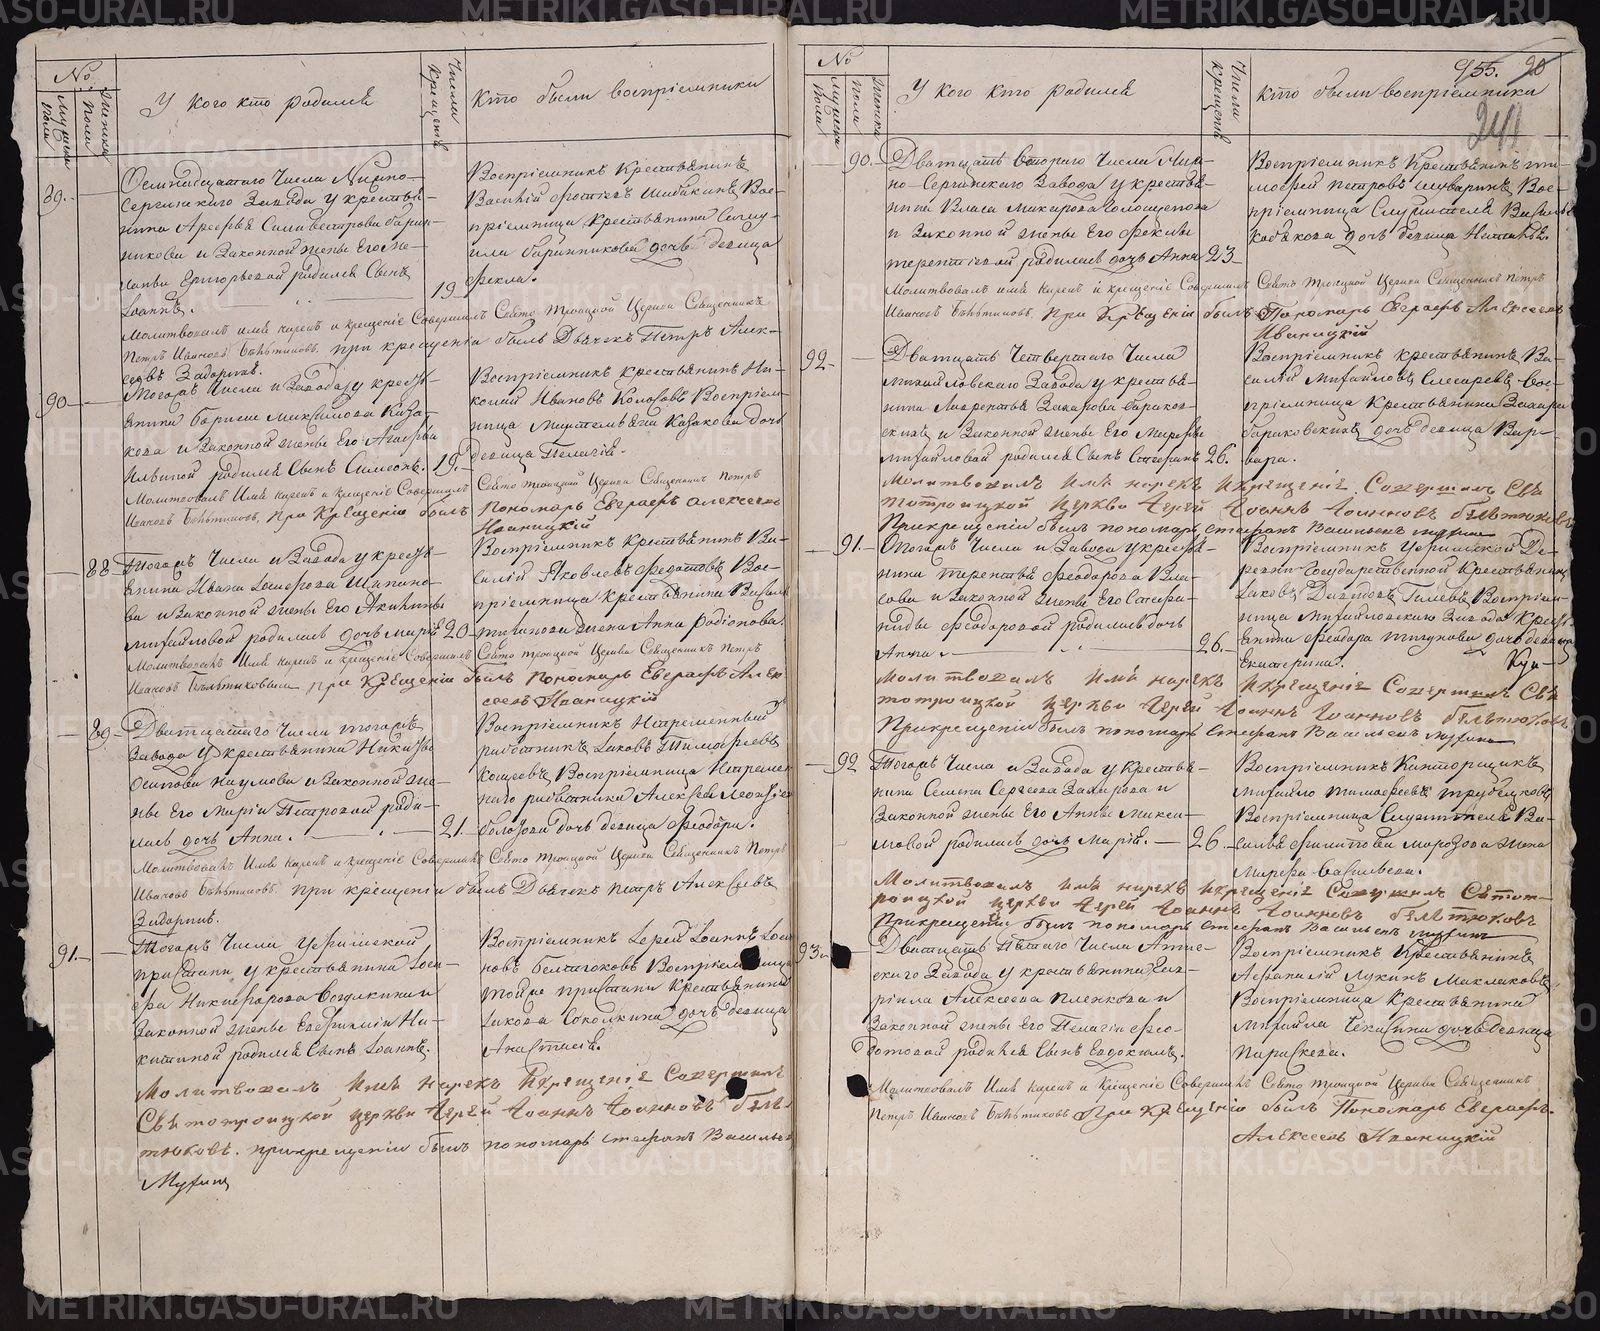 №
Мужска пола
Женска пола
У кого кто родился
Числа крещенія
Кто были воспріемники
89.
Осмнадцатаго Числа Нижно-
Сергинскаго Завода у крестья-
нина Арефья Силивестрова барин-
никова и Законной жены Его Ме-
ланьи Григорьевой родился Сынъ
Іоаннъ.
19
Воспріемникъ Крестьянинъ
Василій Шибакинъ Вос-
пріемница крестьянина Саму-
ила баринникова дочь девица
Фекла.
Молитвовалъ имя нарекъ и крещеніе Совершилъ Свято Троицкой Церкви Священникъ
Петръ Ивановъ Бѣльтюковъ. при крещеніи былъ Дьячекъ Петръ Алек-
сеевъ Задоринъ.
90
Тогожъ Числа и Завода у кресть-
янина бориса Максимова Каза-
кова и Законной жены Его Агафьи
Ильиной родился Сынъ Симеонъ.
19.
Воспріемникъ крестьянинъ Ни-
колай Ивановъ Колобовъ Воспріем-
ница Казакова дочь
девица Пелагія.
Молитвовалъ Имя нарекъ и крещеніе Совершилъ Свято троицкой Церкви Священникъ Петръ
Ивановъ Бѣльтюковъ, при Крещеніи былъ Пономарь Евграфъ Алексеевъ
Иваницкій
88
Тогожъ Числа и Завода у кресть-
янина Ивана Шапино-
ва и Законной жены Его Акилины
михайловой родилась дочь марія
20
Воспріемникъ Крестьянинъ Ва-
силій Яковлевъ Федотовъ Вос-
пріемница Крестьянина Василья
жена Анна Родіонова.
Молитвовалъ Имя нарекъ и крещеніе Совершилъ Свято троицкой Церкви Священникъ Петръ
Ивановъ Бѣльтюковъ при Крещеніи былъ Пономарь Евграфъ Алек
сеевъ Иваницкій
89
Двадцатаго Числа тогожъ
Завода у крестьянина Никифора
Осипова Наумова и Законной же-
ны Его Маріи Петровой роди-
лась дочь Анна.
21.
Воспріемникъ Непременный
работникъ Іаковъ Тимофеевъ
Кощеевъ, Воспріемница Непремен
наго работника Алексея Леонтьева
болотова дочь девица Феодора.
Молитвовалъ Имя нарекъ и крещеніе Совершилъ Свято троицкой Церкви Священникъ Петръ
Ивановъ Бѣльтюковъ, при крещеніи былъ Дьячекъ петръ Алексѣевъ
Задоринъ.
91.
Тогожъ Числа Уфимской
пристани у крестьянина Іоси-
фа Никифорова Соколкина и
Законной жены Евфиміи Ни-
китиной родился Сынъ Іоаннъ.
Воспріемникъ Іерей Іоаннъ Іоан
новъ Бельтюковъ Воспріемница
тойже пристани Крестьянина
Іакова Соколкина дочь девица
Анастасія.
Молитвовалъ Имя нарекъ Икрещеніе Совершилъ
Святотроицкой церкви Іерей Іоаннъ Іоанновъ Бѣль-
тюковъ. прикрещеніи былъ пономарь стефанъ Васильевъ
Мухинъ
№
Мужска пола
Женска пола
У кого кто родился
Числа крещенія
Кто были воспріемники
955. 20
241
90.
Двадцать втораго Числа Ниж-
но-Сергинскаго Завода у крестья-
нина Власа Макарова Голощапова
и Законной жены Его Феклы
терентіевой родилась дочь Анна
23
Воспріемникъ Крестьянинъ ти-
мофей петровъ Шуваринъ, Вос-
пріемница Служителя Василья
Кобякова дочь девица Наталья.
Молитвовалъ имя нарекъ и крещеніе Совершилъ Свято Троицкой Церкви Священникъ Петръ
Ивановъ Бѣльтюковъ, при Крещеніи былъ Пономарь Евграфъ Алексеевъ
Иваницкій
92
Двадцать Четвертаго Числа
михайловскаго Завода у крестья-
нина Лаврентья Захарова бараков-
скихъ и Законной жены Его Марфы
михайловой родился Сынъ Стефанъ
26.
Воспріемникъ крестьянинъ Ва-
силій Михайловъ Слесаревъ Вос-
пріемница Крестьянина Захара
бараковскихъ дочь девица Вар-
вара.
Молитвовалъ Имя нарекъ Икрещеніе Совершилъ Свя
тотроицкой Церкви Іерей Іоаннъ Іоанновъ бѣльтюковъ
Прикрещеніи былъ пономарь стефанъ Васильевъ мухинъ
91.
Тогожъ Числа и Завода у кресть-
янина терентья Феодорова Вла-
сова и Законной жены Его Степа-
ниды Феодоровой родилась дочь
Анна.
26.
Воспріемникъ Уфимской Де-
ревни Государственной Крестьянинъ
Іаковъ Давыдовъ Гилевъ, Воспріем-
ница Михайловскаго Завода Кресть-
янина Феодора тигунова дочь девица
Екатерина.
Молитвовалъ Имя нарекъ Икрещеніе Совершилъ Свя
тотроицкой церкви Іерей Іоаннъ Іоанновъ бѣльтюковъ
Прикрещеніи былъ пономарь Стефанъ Васильевъ мухинъ
92
Тогожъ Числа и Завода у Крестья-
нина Семена Сергеева Захарова и
Законной жены Его Анны Макси-
мовой родилась дочь Марія.
26
Воспріемникъ Канторщикъ
михайло тимофеевъ трубеуковъ
Воспріемница Служителя Ва-
силья Филипова Морозова жена
Марфа Васильева.
Молитвовалъ Имя нарекъ Икрещеніе Совершилъ Святот-
роицкой церкви Іерей Іоаннъ Іоанновъ бѣльтюковъ
Прикрещеніи былъ пономарь Стефанъ Васильевъ мухинъ
93.
Двадцать Пятаго Числа Атиг-
скаго Завода у крестьянина Гав-
ріила Алексеева пленкова и
Законной жены Его Пелагіи Фео-
дотовой родился Сынъ Евдокимъ.
Воспріемникъ Крестьянинъ
Афанасій Лукинъ Маклаковъ,
Воспріемница Крестьянина
Михайла Чекасина дочь девица
Параскева.
Молитвовалъ Имя нарекъ и Крещеніе Совершилъ Свято троицкой Церкви Священникъ
Петръ Ивановъ Бѣльтюковъ При Крещеніи былъ Пономарь Евграфъ
Алексеевъ Иваницкій
METRIKI.GASO-URAL.RU